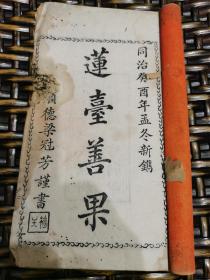 同治癸酉年孟冬新鐫
蓮臺善果
順德梁冠芳謹書